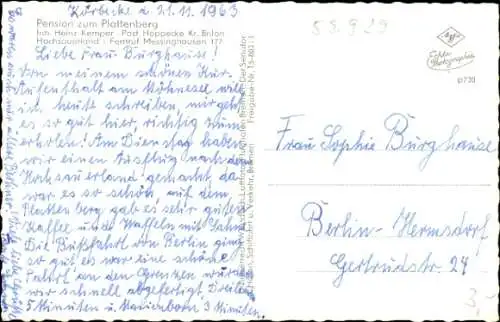 Körbecke d. 21.11.1963
Pension zum Plattenberg
Inh. Heinz Kemper · Post Hoppecke Kr. Brilon
Hochsauerland · Fernruf Messinghausen 177
Liebe Frau Burghause!
Von meinem schönen Kur-
Aufenthalt am Möhnesee will
ich heute schreiben, mir geht
es so gut hier, richtig zum
erholen! Am Dienstag haben
wir einen Ausflug nach dem
Hochsauerland gemacht, da
war es so schön, auf dem
Plattenberg gab es sehr guten
Kaffee und Waffeln mit Sahne
Die Busfahrt von Berlin ging
so gut es war eine schöne
Fahrt an den Grenzen wurden
wir schnell abgefertigt, Dreilinden
5 Minuten u. Marienborn 3 Minuten.
55 929
Echte
Photographie
Frau Sophie Burghause
Berlin-Hermsdorf
Gertrudstr. 24
3,-